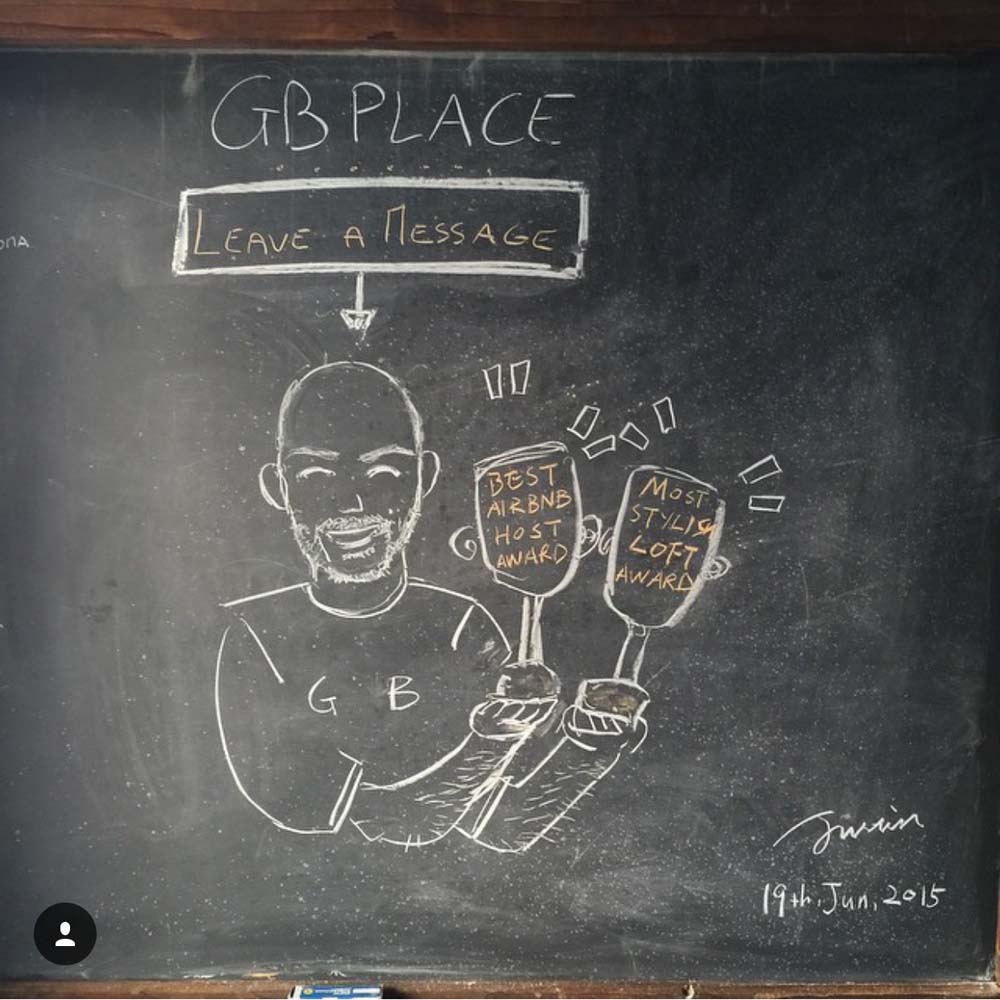 GB PLACE
LEAVE A MESSAGE
BEST
AIRBNB
HOST
AWARD
MOST
STYLISH
LOFT
AWARD
G B
19th, Jun, 2015